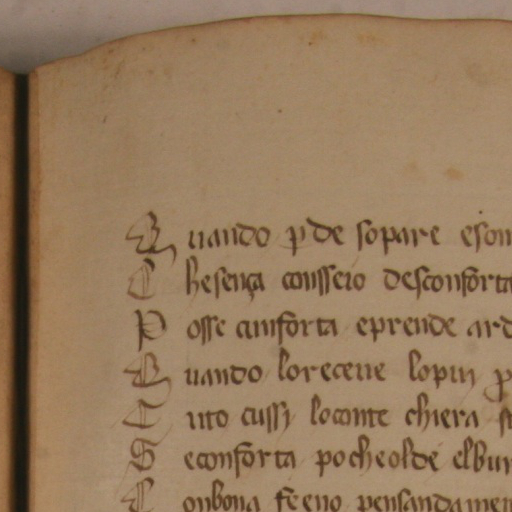 Q uando p de sopare eson
C hesença consseio desconforta
P osse cunforta eprende ard
Q uando loreceue lopiu p
T uto cussi loconte chiera s
S econforta pocheolde elbur
C onbona feeno pensandamen